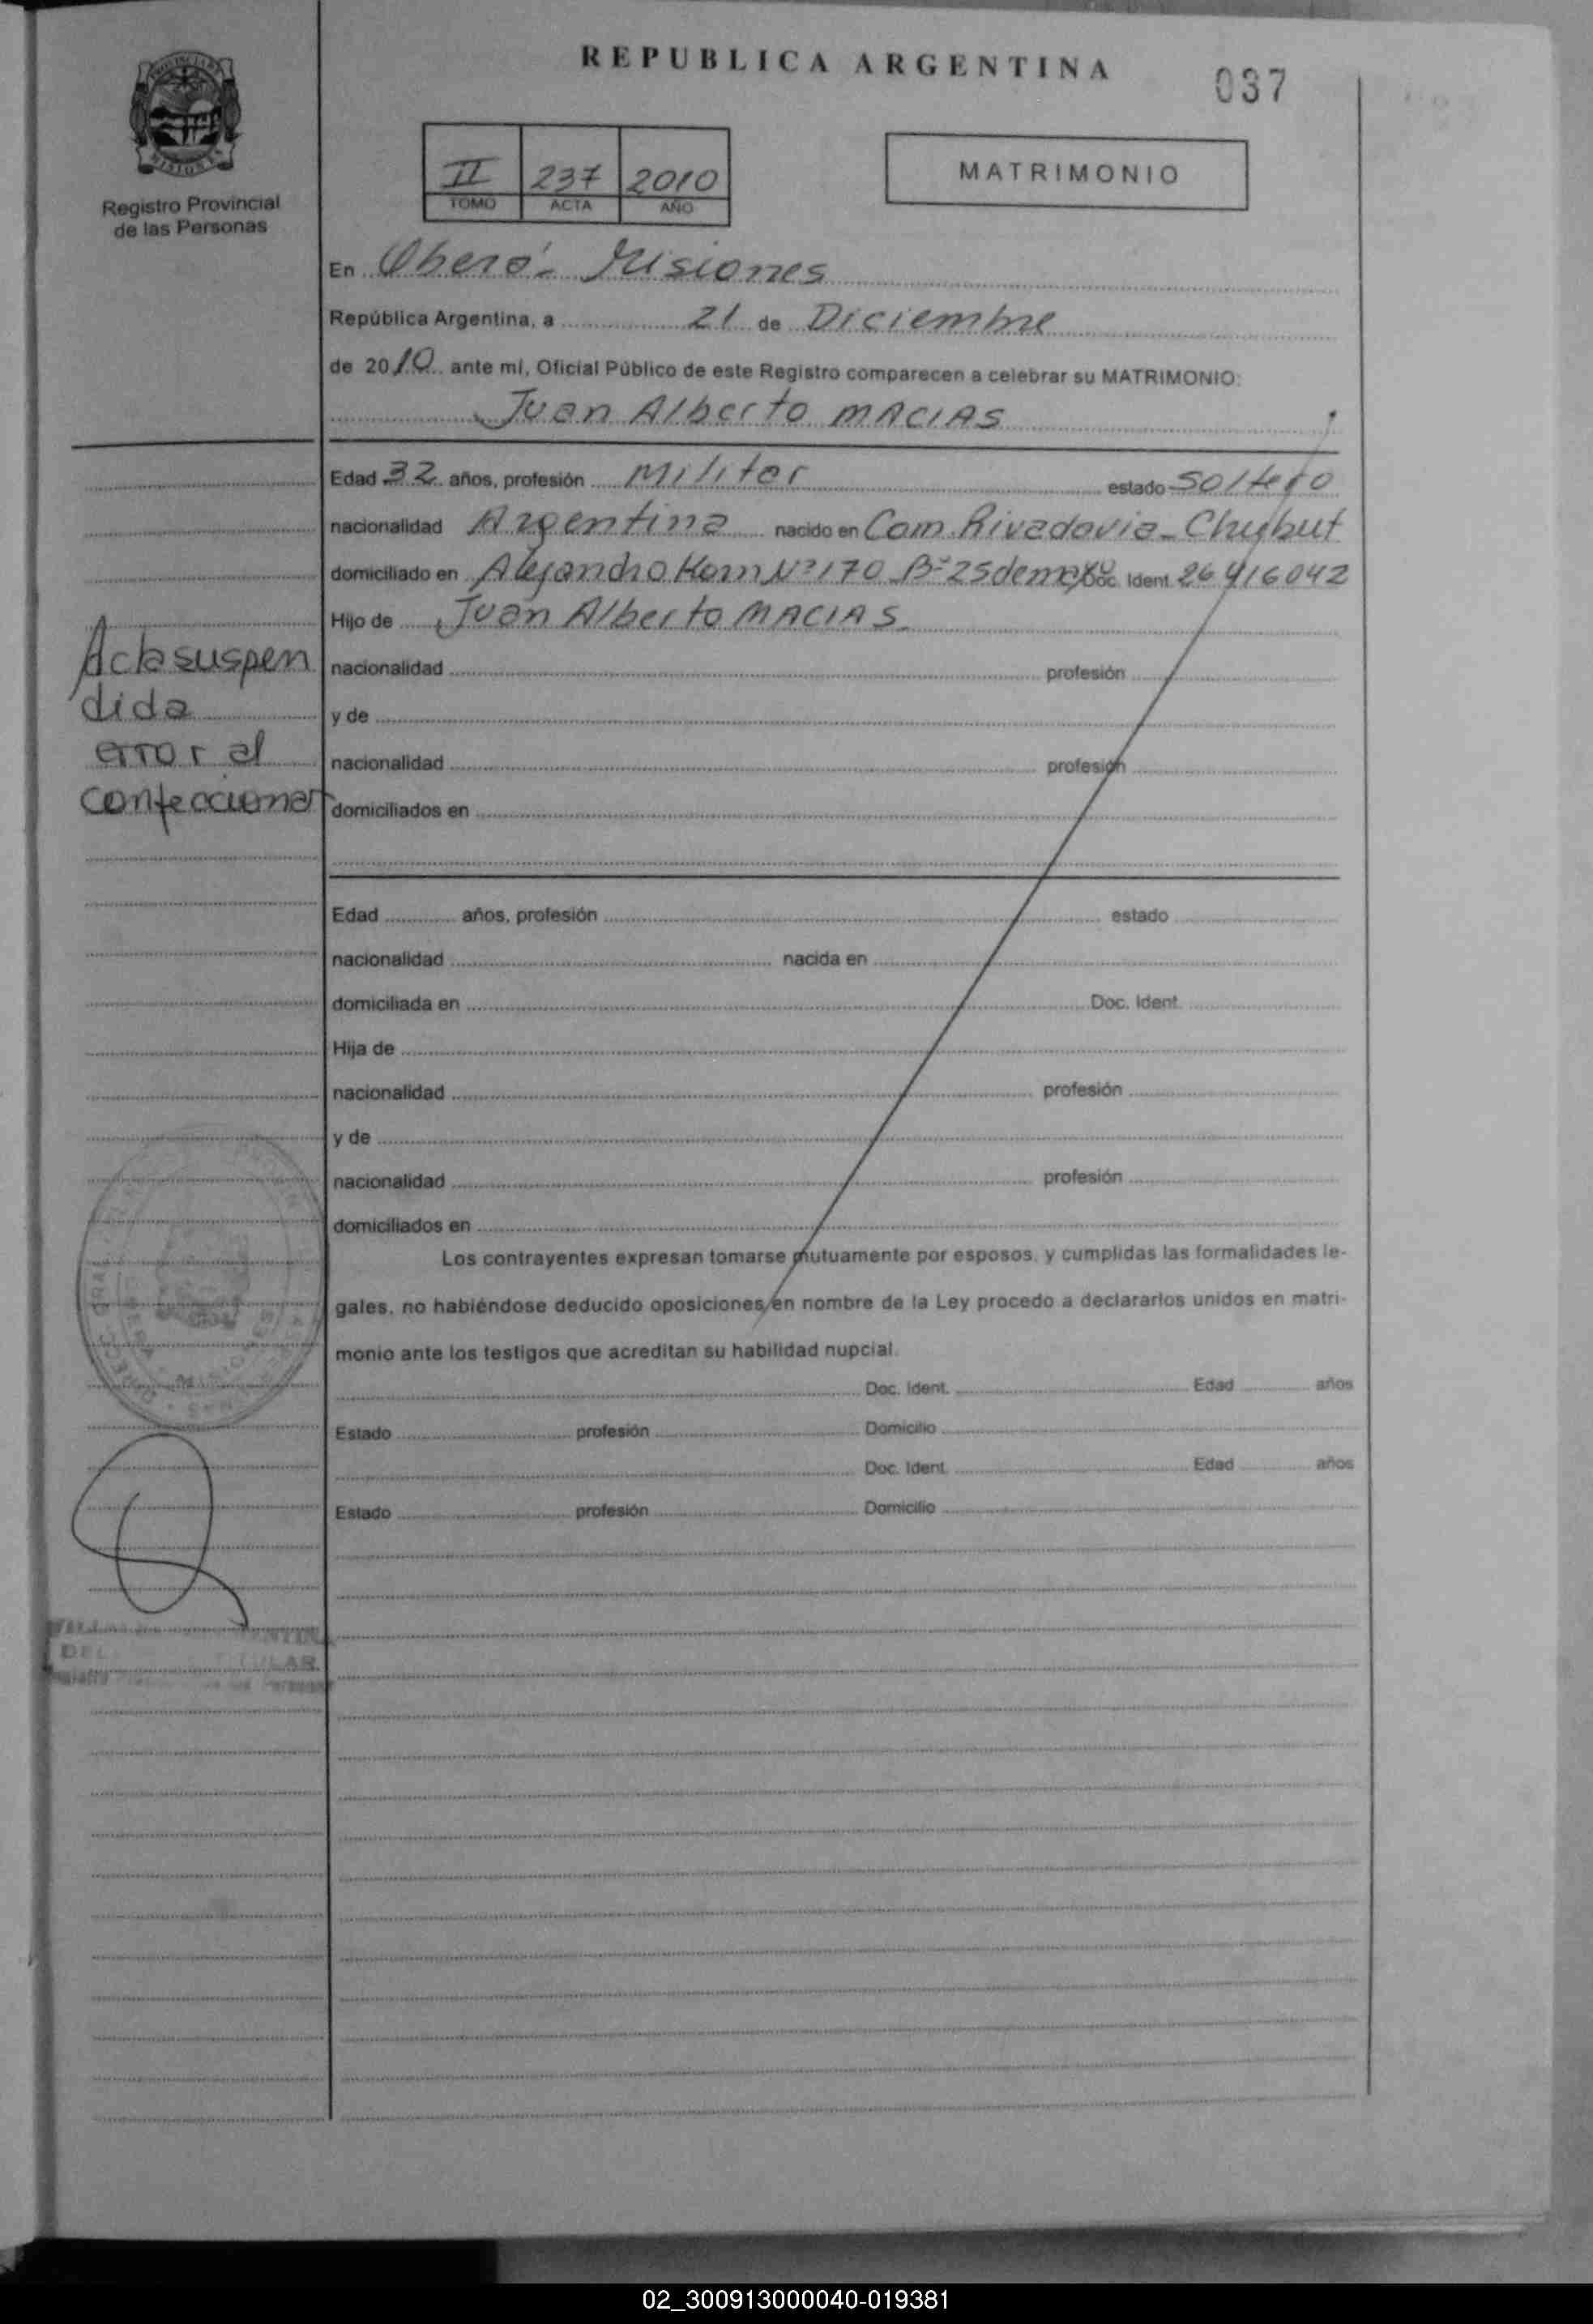 REPUBLICA ARGENTINA
037
PROVINCIA DE
MISIONES
Registro Provincial
de las Personas
II 237 2010
TOMO ACTA AÑO
MATRIMONIO
En Oberá - Misiones
República Argentina, a 21 de Diciembre
de 2010 ante mí, Oficial Público de este Registro comparecen a celebrar su MATRIMONIO:
Juan Alberto MACIAS
Edad 32 años, profesión Militar estado Soltero
nacionalidad Argentina nacido en Com. Rivadavia - Chubut
domiciliado en Alejandro Korn Nº 170 Bº 25 de mayo Doc. Ident. 26416042
Hijo de Juan Alberto MACIAS
nacionalidad profesión
y de
nacionalidad profesión
domiciliados en
Acta suspen
dida
error al
confeccionar
Edad años, profesión estado
nacionalidad nacida en
domiciliada en Doc. Ident.
Hija de
nacionalidad profesión
y de
nacionalidad profesión
domiciliados en
Los contrayentes expresan tomarse mutuamente por esposos, y cumplidas las formalidades le-
gales, no habiéndose deducido oposiciones, en nombre de la Ley procedo a declararlos unidos en matri-
monio ante los testigos que acreditan su habilidad nupcial.
Doc. Ident. Edad años
Estado profesión Domicilio
Doc. Ident. Edad años
Estado profesión Domicilio
02_300913000040-019381